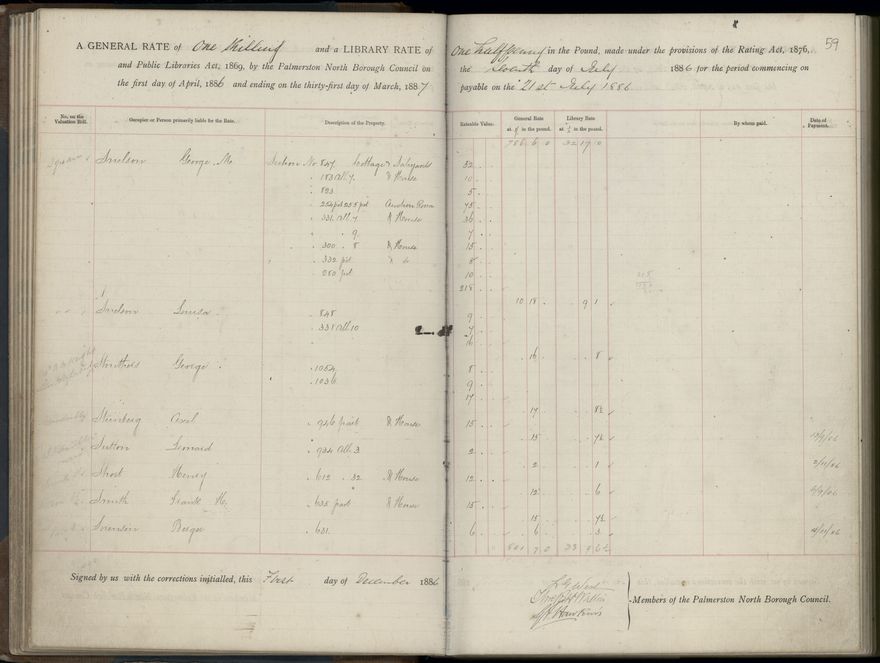 59
A GENERAL RATE of One Shilling and a LIBRARY RATE of One halfpenny in the Pound, made under the provisions of the Rating Act, 1876,
and Public Libraries Act, 1869, by the Palmerston North Borough Council on the Seventh day of July 1886 for the period commencing on
the first day of April, 1886 and ending on the thirty-first day of March, 1887 payable on the 21st July 1886
No. on the Valuation Roll. Occupier or Person primarily liable for the Rate. Description of the Property. Rateable Value. General Rate at 1/ in the pound. Library Rate at ½ in the pound. By whom paid. Date of Payment.
786 6 0 32 17 10
Snelson George M. Section No 847 Cottage & Saleyards 32
183 All 7 & House 10
823 5
254 pt 255 pt Auction Room 95
331 All 7 & House 36
9 7
300 8 & House 15
332 pt 8
250 pt 10
218
10 18 9 1
Snelson Louisa 848 9
331 All 10 7
16
16 8
Struthers George 1054 8
1036 9
17
17 8½
Steinberg Axel 946 part & House 15
15 7½
Sutton Leonard 934 All 3 2
2 1
Short Henry 612 32 & House 12
12 6
Smith Frank H. 635 part & House 15
15 7½
Sorenson 631 6 6 3
801 7 0 33
Signed by us with the corrections initialled, this First day of December 1886
Members of the Palmerston North Borough Council.